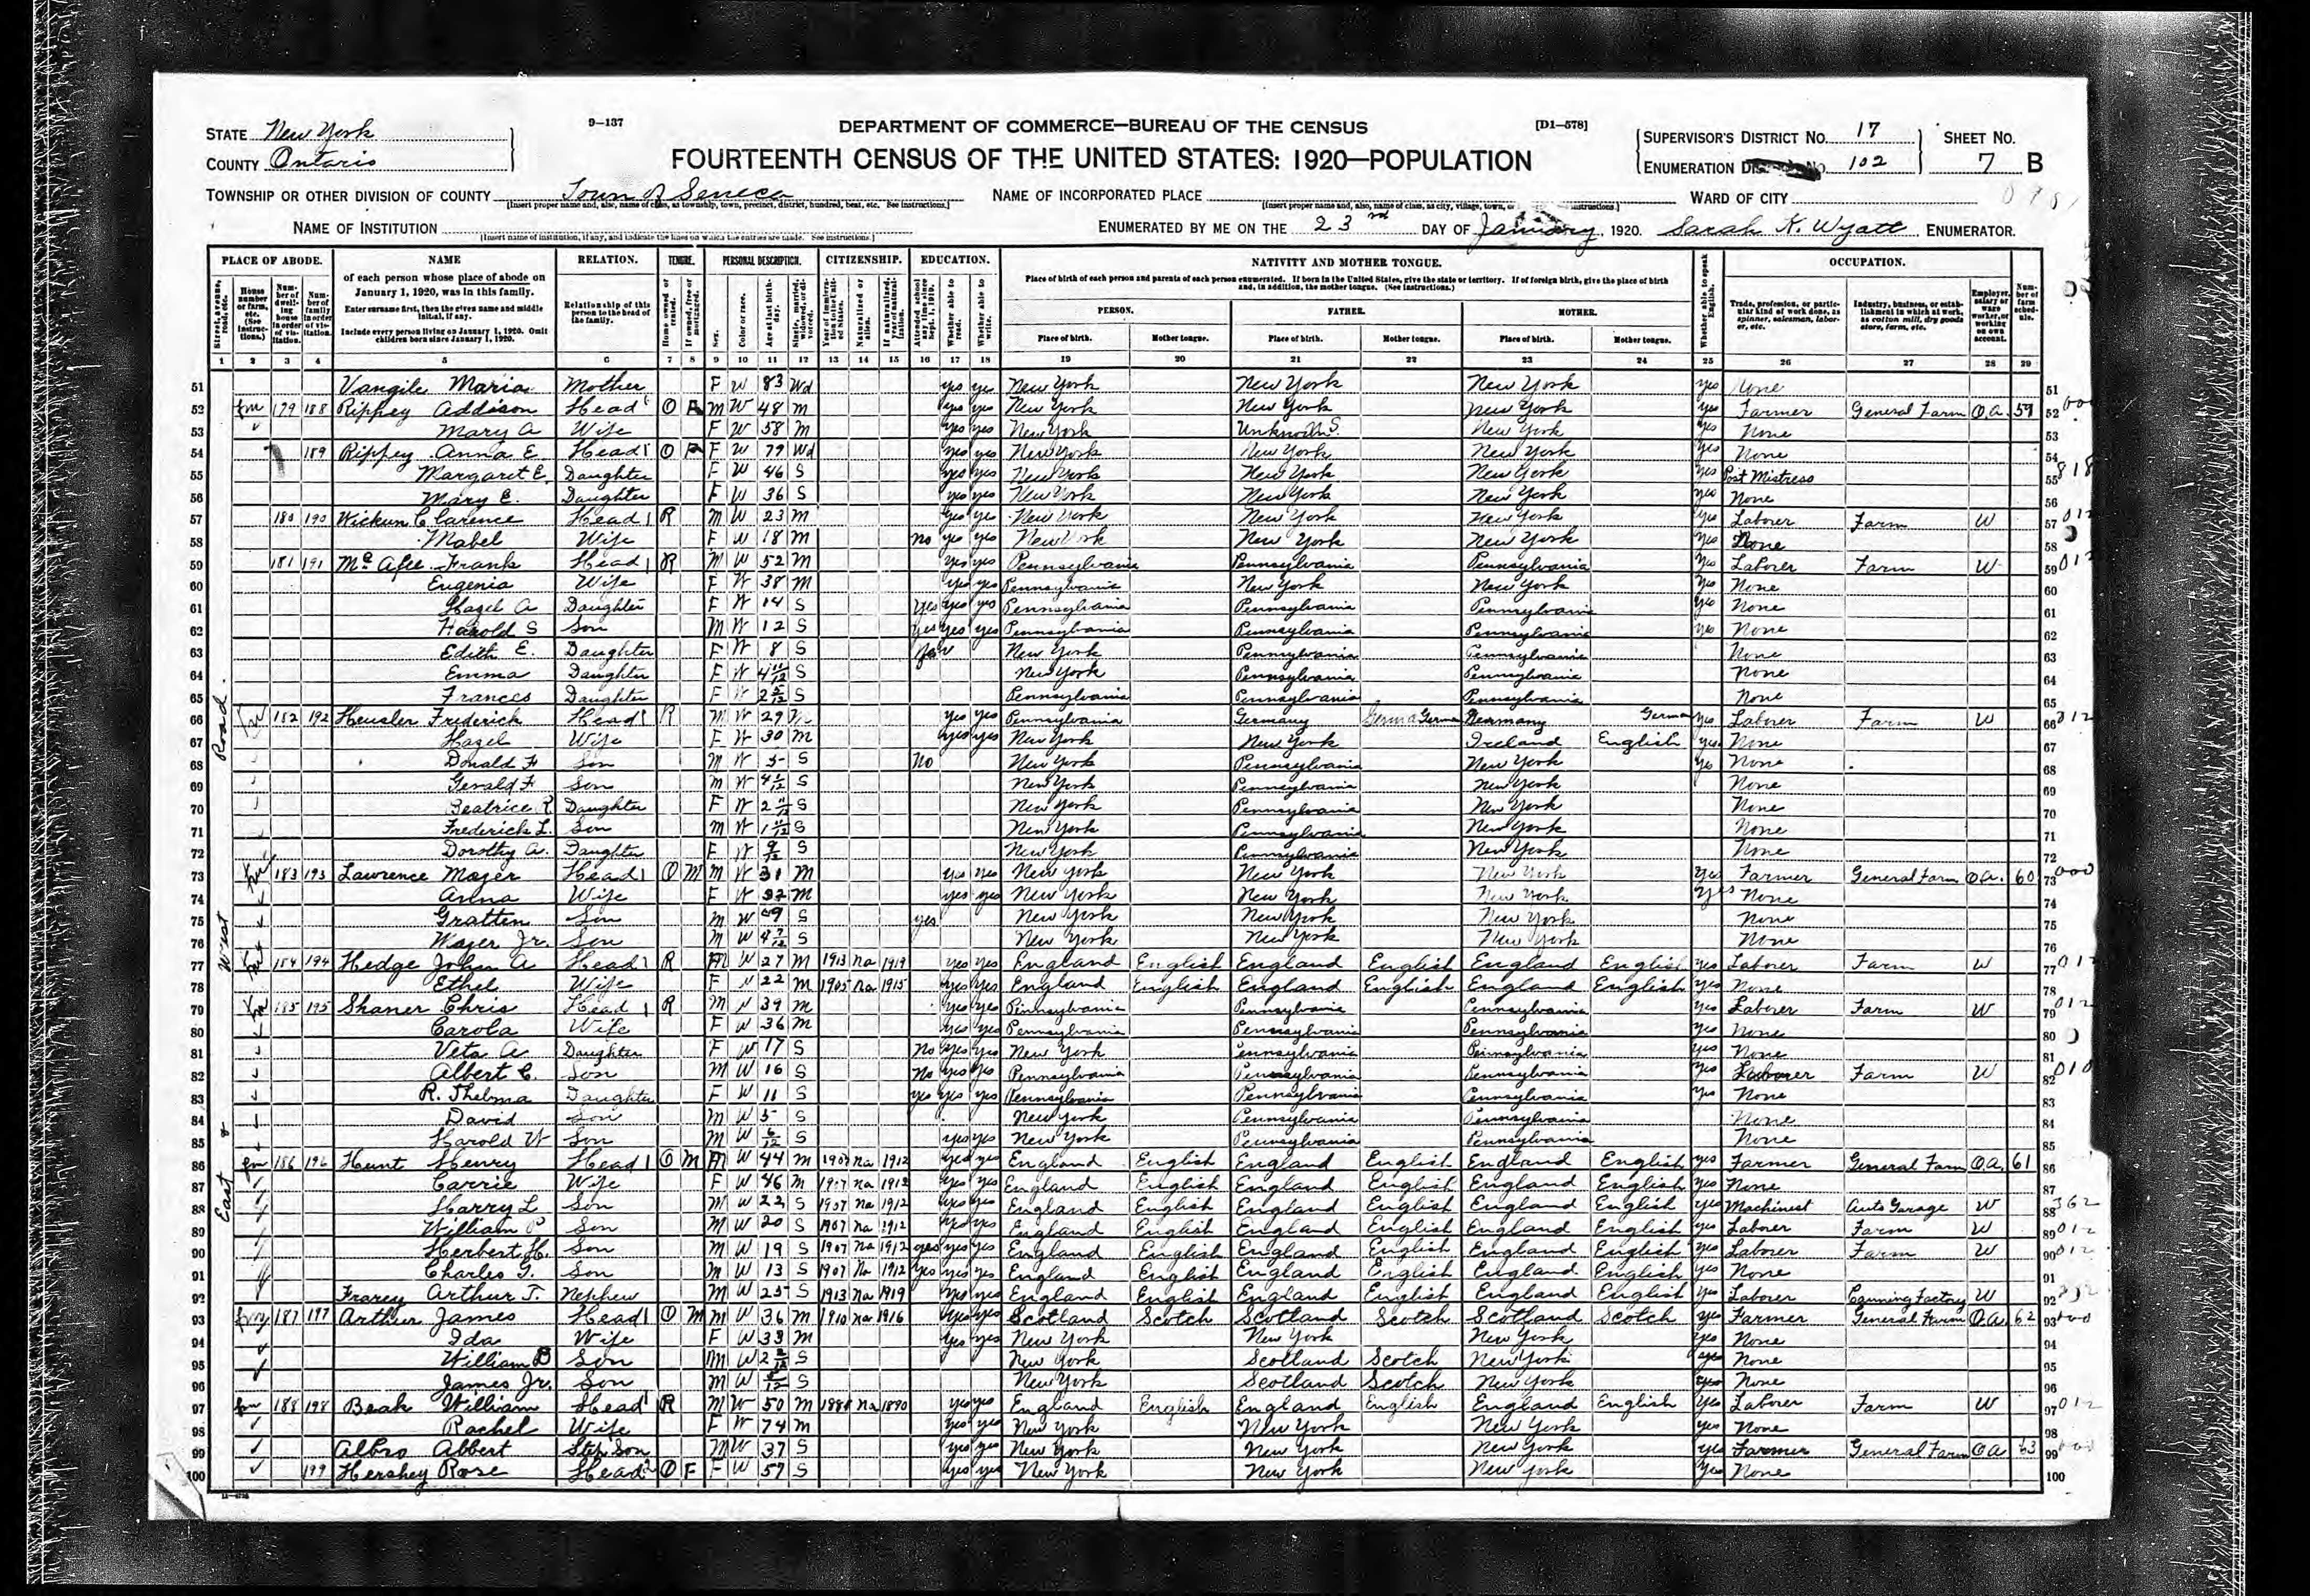 STATE New York
COUNTY Ontario
9—137
DEPARTMENT OF COMMERCE—BUREAU OF THE CENSUS
[D1—578]
FOURTEENTH CENSUS OF THE UNITED STATES: 1920—POPULATION
SUPERVISOR'S DISTRICT No. 17
ENUMERATION No. 102
SHEET No. 7 B
TOWNSHIP OR OTHER DIVISION OF COUNTY Town of Seneca
[Insert proper name and, also, name of class, as township, town, precinct, district, hundred, beat, etc. See instructions.]
NAME OF INCORPORATED PLACE
WARD OF CITY
NAME OF INSTITUTION
[Insert name of institution, if any, and indicate the lines on which the entries are made. See instructions.]
ENUMERATED BY ME ON THE 23rd DAY OF January, 1920. Sarah K. Wyatt, ENUMERATOR.
PLACE OF ABODE. NAME RELATION. TENURE. PERSONAL DESCRIPTION. CITIZENSHIP. EDUCATION. NATIVITY AND MOTHER TONGUE. OCCUPATION.
of each person whose place of abode on January 1, 1920, was in this family.
Enter surname first, then the given name and middle initial, if any.
Include every person living on January 1, 1920. Omit children born since January 1, 1920.
Relationship of this person to the head of the family.
Place of birth of each person and parents of each person enumerated. If born in the United States, give the state or territory. If of foreign birth, give the place of birth and, in addition, the mother tongue. (See instructions.)
PERSON. FATHER. MOTHER.
Place of birth. Mother tongue. Place of birth. Mother tongue. Place of birth. Mother tongue.
1 2 3 4 5 6 7 8 9 10 11 12 13 14 15 16 17 18 19 20 21 22 23 24 25 26 27 28 29
51 Vangile Maria Mother F W 83 Wd yes yes New York New York New York yes None 51
52 fm 179 188 Rippey Addison Head O F M W 48 M yes yes New York New York New York yes Farmer General Farm O.A. 59 52
53 Mary A Wife F W 58 M yes yes New York New York yes None 53
54 189 Rippey Anna E Head O F F W 79 Wd yes yes New York New York New York yes None 54
55 Margaret E. Daughter F W 46 S yes yes New York New York New York yes Post Mistress 55 818
56 Mary E. Daughter F W 36 S yes yes New York New York New York yes None 56
57 180 190 Wickum Clarence Head R M W 23 M yes yes New York New York New York yes Laborer Farm W 57
58 Mabel Wife F W 18 M no yes yes New York New York New York yes None 58
59 181 191 McAfee Frank Head R M W 52 M yes yes Pennsylvania Pennsylvania Pennsylvania yes Laborer Farm W 59 012
60 Eugenia Wife F W 38 M yes yes Pennsylvania New York New York yes None 60
61 Hazel A Daughter F W 14 S yes yes yes Pennsylvania Pennsylvania Pennsylvania yes None 61
62 Harold S Son M W 12 S yes yes yes Pennsylvania Pennsylvania Pennsylvania yes None 62
63 Edith E. Daughter F W 8 S New York Pennsylvania Pennsylvania None 63
64 Emma Daughter F W 4 11/12 S New York Pennsylvania Pennsylvania None 64
65 Frances Daughter F W S Pennsylvania Pennsylvania Pennsylvania None 65
66 fm 182 192 Heusler Frederick Head R M W 29 M yes yes Pennsylvania Germany German Germany German yes Laborer Farm W 66 012
67 Hazel Wife F W 30 M yes yes New York New York Ireland English yes None 67
68 Donald F Son M W 5 S No New York Pennsylvania New York yes None 68
69 Gerald F Son M W S New York Pennsylvania New York None 69
70 Beatrice R Daughter F W S New York Pennsylvania New York None 70
71 Frederick L. Son M W 1 11/12 S New York Pennsylvania New York None 71
72 Dorothy A. Daughter F W S New York Pennsylvania New York None 72
73 fm 183 193 Lawrence Mozer Head O M M W 31 M yes yes New York New York New York yes Farmer General Farm O.A. 60 73 000
74 Anna Wife F W 32 M yes yes New York New York New York yes None 74
75 Gratten Son M W 9 S yes New York New York New York None 75
76 Mozer Jr. Son M W S New York New York New York None 76
77 fm 184 194 Hedge John A Head R M W 27 M 1913 Na 1919 yes yes England English England English England English yes Laborer Farm W 77 012
78 Ethel Wife F W 22 M 1905 Na 1915 yes yes England English England English England English yes None 78
79 fm 185 195 Shaner Chris Head R M W 39 M yes yes Pennsylvania Pennsylvania Pennsylvania yes Laborer Farm W 79 012
80 Carola Wife F W 36 M yes yes Pennsylvania Pennsylvania Pennsylvania yes None 80
81 Veta A Daughter F W 17 S No yes yes New York Pennsylvania Pennsylvania yes None 81
82 Albert C. Son M W 16 S No yes yes Pennsylvania Pennsylvania Pennsylvania yes Laborer Farm W 82 010
83 R. Thelma Daughter F W 11 S yes yes yes Pennsylvania Pennsylvania Pennsylvania yes None 83
84 David Son M W 5 S New York Pennsylvania Pennsylvania None 84
85 Harold W Son M W 6/12 S yes yes New York Pennsylvania Pennsylvania None 85
86 fm 186 196 Hunt Henry Head O M M W 44 M 1907 Na 1912 yes yes England English England English England English yes Farmer General Farm O.A. 61 86
87 Carrie Wife F W 46 M 1907 Na 1912 yes yes England English England English England English yes None 87
88 Harry L Son M W 22 S 1907 Na 1912 yes yes England English England English England English yes Machinest Auto Garage W 88 362
89 William P Son M W 20 S 1907 Na 1912 yes yes England English England English England English yes Laborer Farm W 89 012
90 Herbert H. Son M W 19 S 1907 Na 1912 yes yes yes England English England English England English yes Laborer Farm W 90 012
91 Charles G. Son M W 13 S 1907 Na 1912 yes yes yes England English England English England English yes None 91
92 Frarey Arthur T. Nephew M W 25 S 1913 Na 1919 yes yes England English England English England English yes Laborer Canning Factory W 92
93 fm 187 197 Arthur James Head O M M W 36 M 1910 Na 1916 yes yes Scotland Scotch Scotland Scotch Scotland Scotch yes Farmer General Farm O.A. 62 93
94 Ida Wife F W 33 M yes yes New York New York New York yes None 94
95 William D Son M W S New York Scotland Scotch New York yes None 95
96 James Jr. Son M W S New York Scotland Scotch New York yes None 96
97 fm 188 198 Beak William Head R M W 50 M Na 1890 yes yes England English England English England English yes Laborer Farm W 97 012
98 Rachel Wife F W 74 M yes yes New York New York New York yes None 98
99 Albro Albert Step Son M W 37 S yes yes New York New York New York yes Farmer General Farm O.A. 63 99
100 199 Hershey Rose Head O F F W 57 S yes yes New York New York New York yes None 100
East & West Road